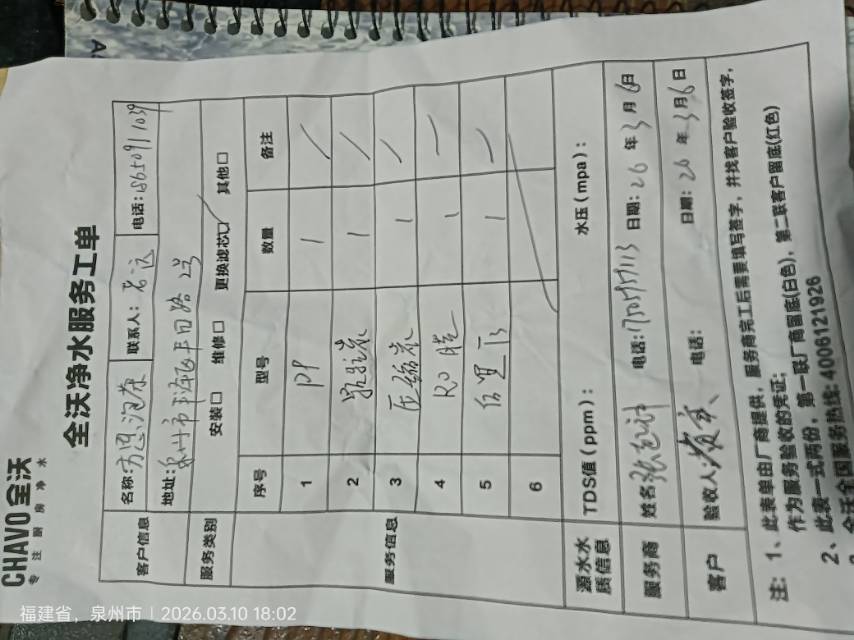 CHAVO全沃
专注厨房净水
全沃净水服务工单
客户信息 名称: 联系人: 电话:
地址:
服务类别 安装□ 维修□ 更换滤芯☑ 其他□
服务信息 序号 型号 数量 备注
1 PP 1 /
2 1 /
3 压缩炭 1 /
4 RO膜 1 /
5 后置 1 /
6
源水水质信息 TDS值(ppm): 水压(mpa):
服务商 姓名 电话: 日期:26年3月6日
客户 验收人: 电话: 日期:26年3月6日
注: 1、此表单由厂商提供,服务商完工后需要填写签字,并找客户验收签字,
作为服务验收的凭证;
2、此表一式两份,第一联厂商留底(白色),第二联客户留底(红色)
全沃全国服务热线:4006121926
福建省,泉州市 | 2026.03.10 18:02